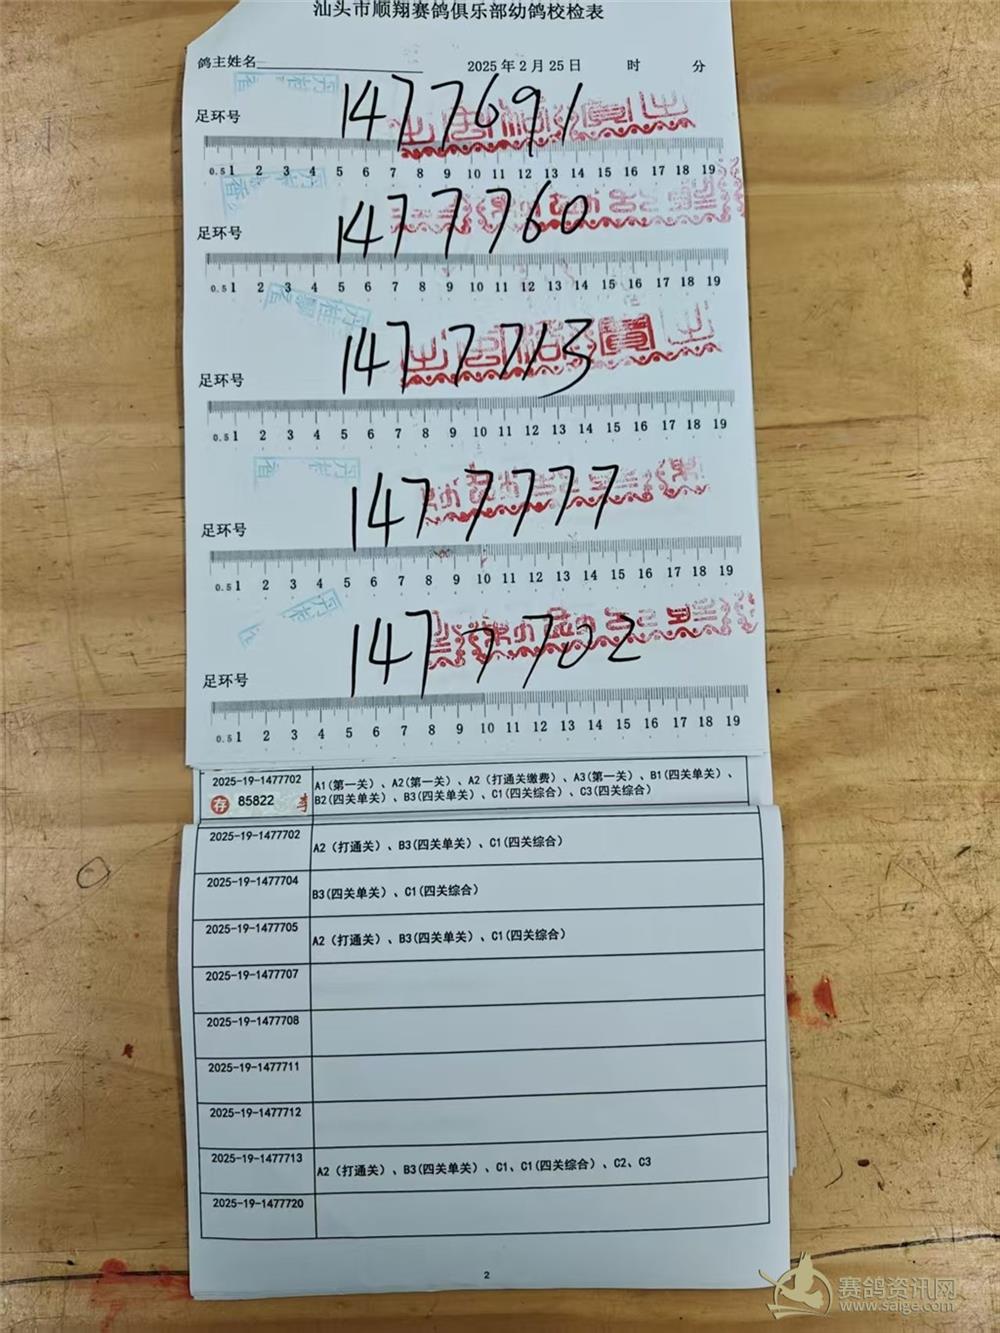 汕头市顺翔赛鸽俱乐部幼鸽校检表
鸽主姓名 2025年2月25日 时 分
足环号 1477691
0.5 1 2 3 4 5 6 7 8 9 10 11 12 13 14 15 16 17 18 19
足环号 1477760
0.5 1 2 3 4 5 6 7 8 9 10 11 12 13 14 15 16 17 18 19
足环号 1477713
0.5 1 2 3 4 5 6 7 8 9 10 11 12 13 14 15 16 17 18 19
足环号 1477777
0.5 1 2 3 4 5 6 7 8 9 10 11 12 13 14 15 16 17 18 19
足环号 1477702
0.5 1 2 3 4 5 6 7 8 9 10 11 12 13 14 15 16 17 18 19
2025-19-1477702 A1(第一关)、A2(第一关)、A2(打通关缴费)、A3(第一关)、B1(四关单关)、
存 85822 B2(四关单关)、B3(四关单关)、C1(四关综合)、C3(四关综合)
2025-19-1477702 A2(打通关)、B3(四关单关)、C1(四关综合)
2025-19-1477704 B3(四关单关)、C1(四关综合)
2025-19-1477705 A2(打通关)、B3(四关单关)、C1(四关综合)
2025-19-1477707
2025-19-1477708
2025-19-1477711
2025-19-1477712
2025-19-1477713 A2(打通关)、B3(四关单关)、C1、C1(四关综合)、C2、C3
2025-19-1477720
2
赛鸽资讯网
www.saige.com